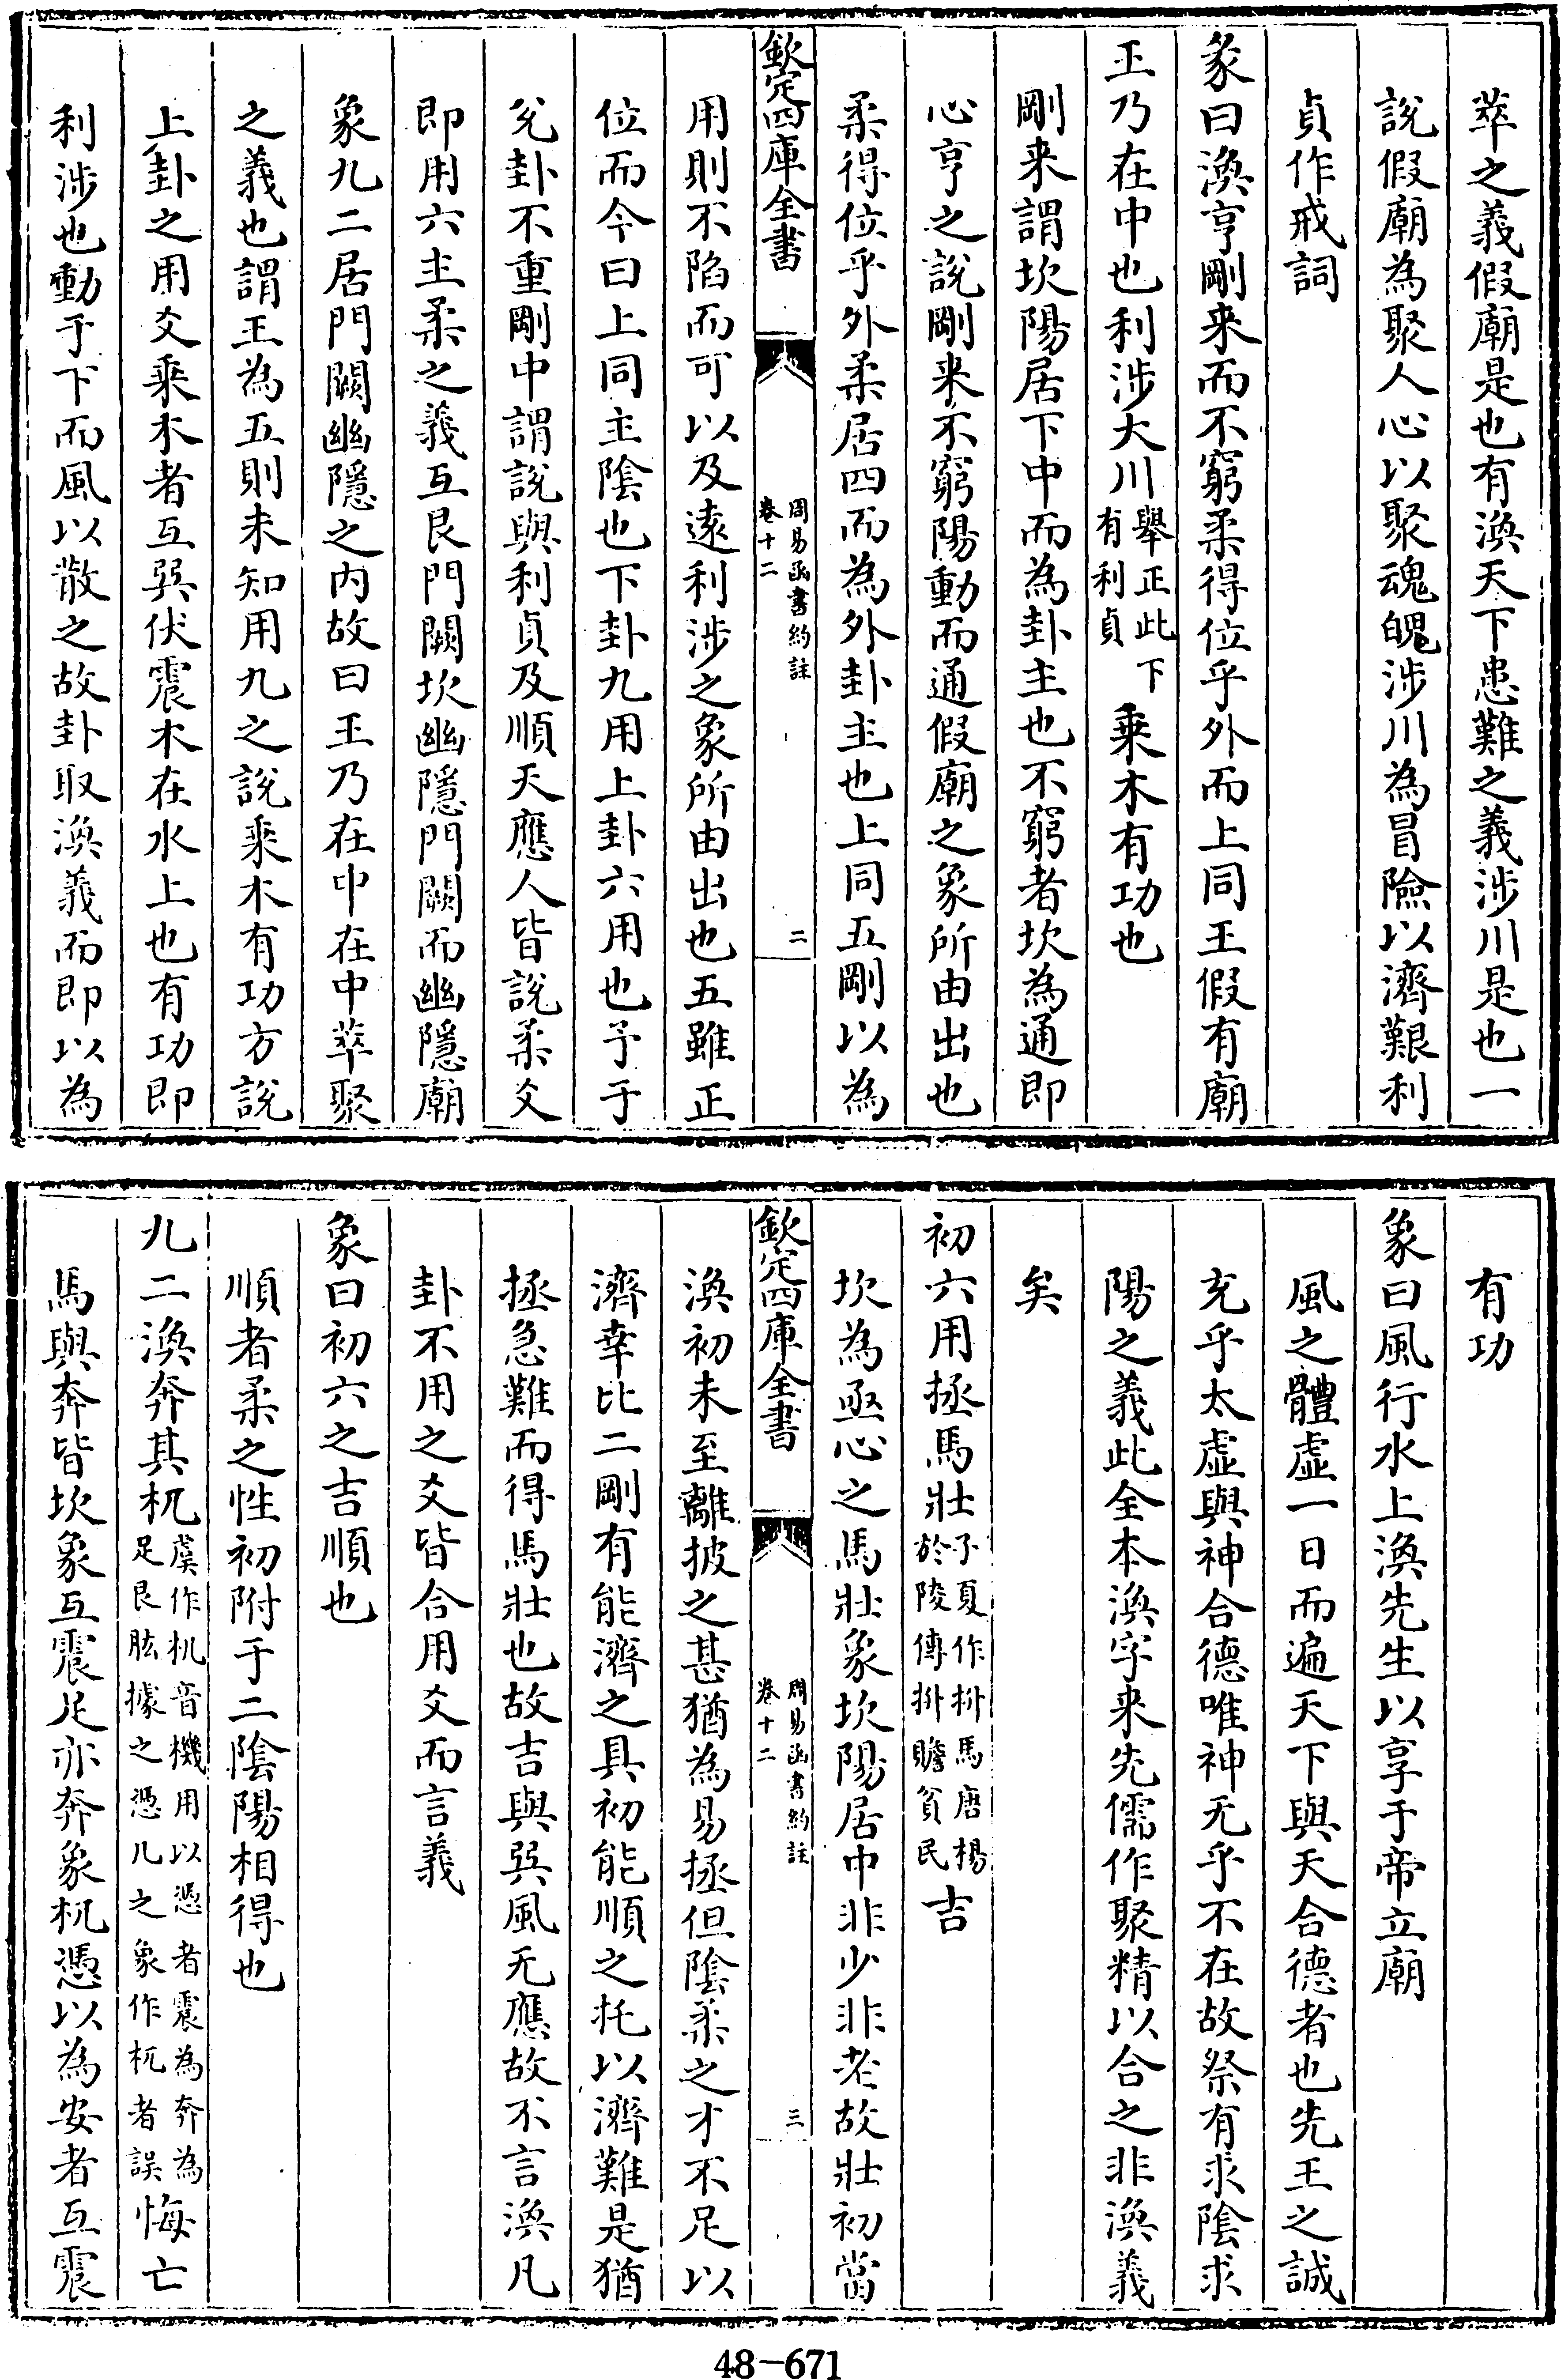 萃之義假廟是也有渙天下患難之義涉川是也一
說假廟為聚人心以聚魂魄涉川為冒險以濟艱利
貞作戒詞
彖曰渙亨剛來而不窮柔得位乎外而上同王假有廟
王乃在中也利涉大川舉正此下有利貞乗木有功也
剛来謂坎陽居下中而為卦主也不窮者坎為通即
心亨之說剛来不窮陽動而通假廟之象所由出也
柔得位乎外柔居四而為外卦主也上同五剛以為
欽定四庫全書 周易函書約註 卷十二 二
用則不陷而可以及逺利涉之象所由出也五雖正
位而今曰上同主陰也下卦九用上卦六用也予于
兊卦不重剛中謂說與利貞及順天應人皆說柔爻
即用六主柔之義互艮門闕坎幽隱門闕而幽隱廟
象九二居門闕幽隱之内故曰王乃在中在中萃聚
之義也謂王為五則未知用九之說乗木有功方說
上卦之用爻乗木者互巽伏震木在水上也有功即
利涉也動于下而風以散之故卦取渙義而即以為
有功
象曰風行水上渙先生以享于帝立廟
風之體虛一日而遍天下與天合德者也先王之誠
充乎太虛與神合德唯神无乎不在故祭有求陰求
陽之義此全本渙字来先儒作聚精以合之非渙義
矣
初六用拯馬壯子夏作抍馬唐楊於陵傳抍贍貧民吉
坎為亟心之馬壯象坎陽居中非少非老故壯初當
欽定四庫全書 周易函書約註 卷十二 三
渙初未至離披之甚猶為易拯但陰柔之才不足以
濟幸比二剛有能濟之具初能順之托以濟難是猶
拯急難而得馬壯也故吉與巽風无應故不言渙凡
卦不用之爻皆合用爻而言義
象曰初六之吉順也
順者柔之性初附于二陰陽相得也
九二渙奔其机虞作机音機用以憑者震為奔為足艮肱據之憑几之象作杌者誤悔亡
馬與奔皆坎象互震足亦奔象机憑以為安者互震
48-671